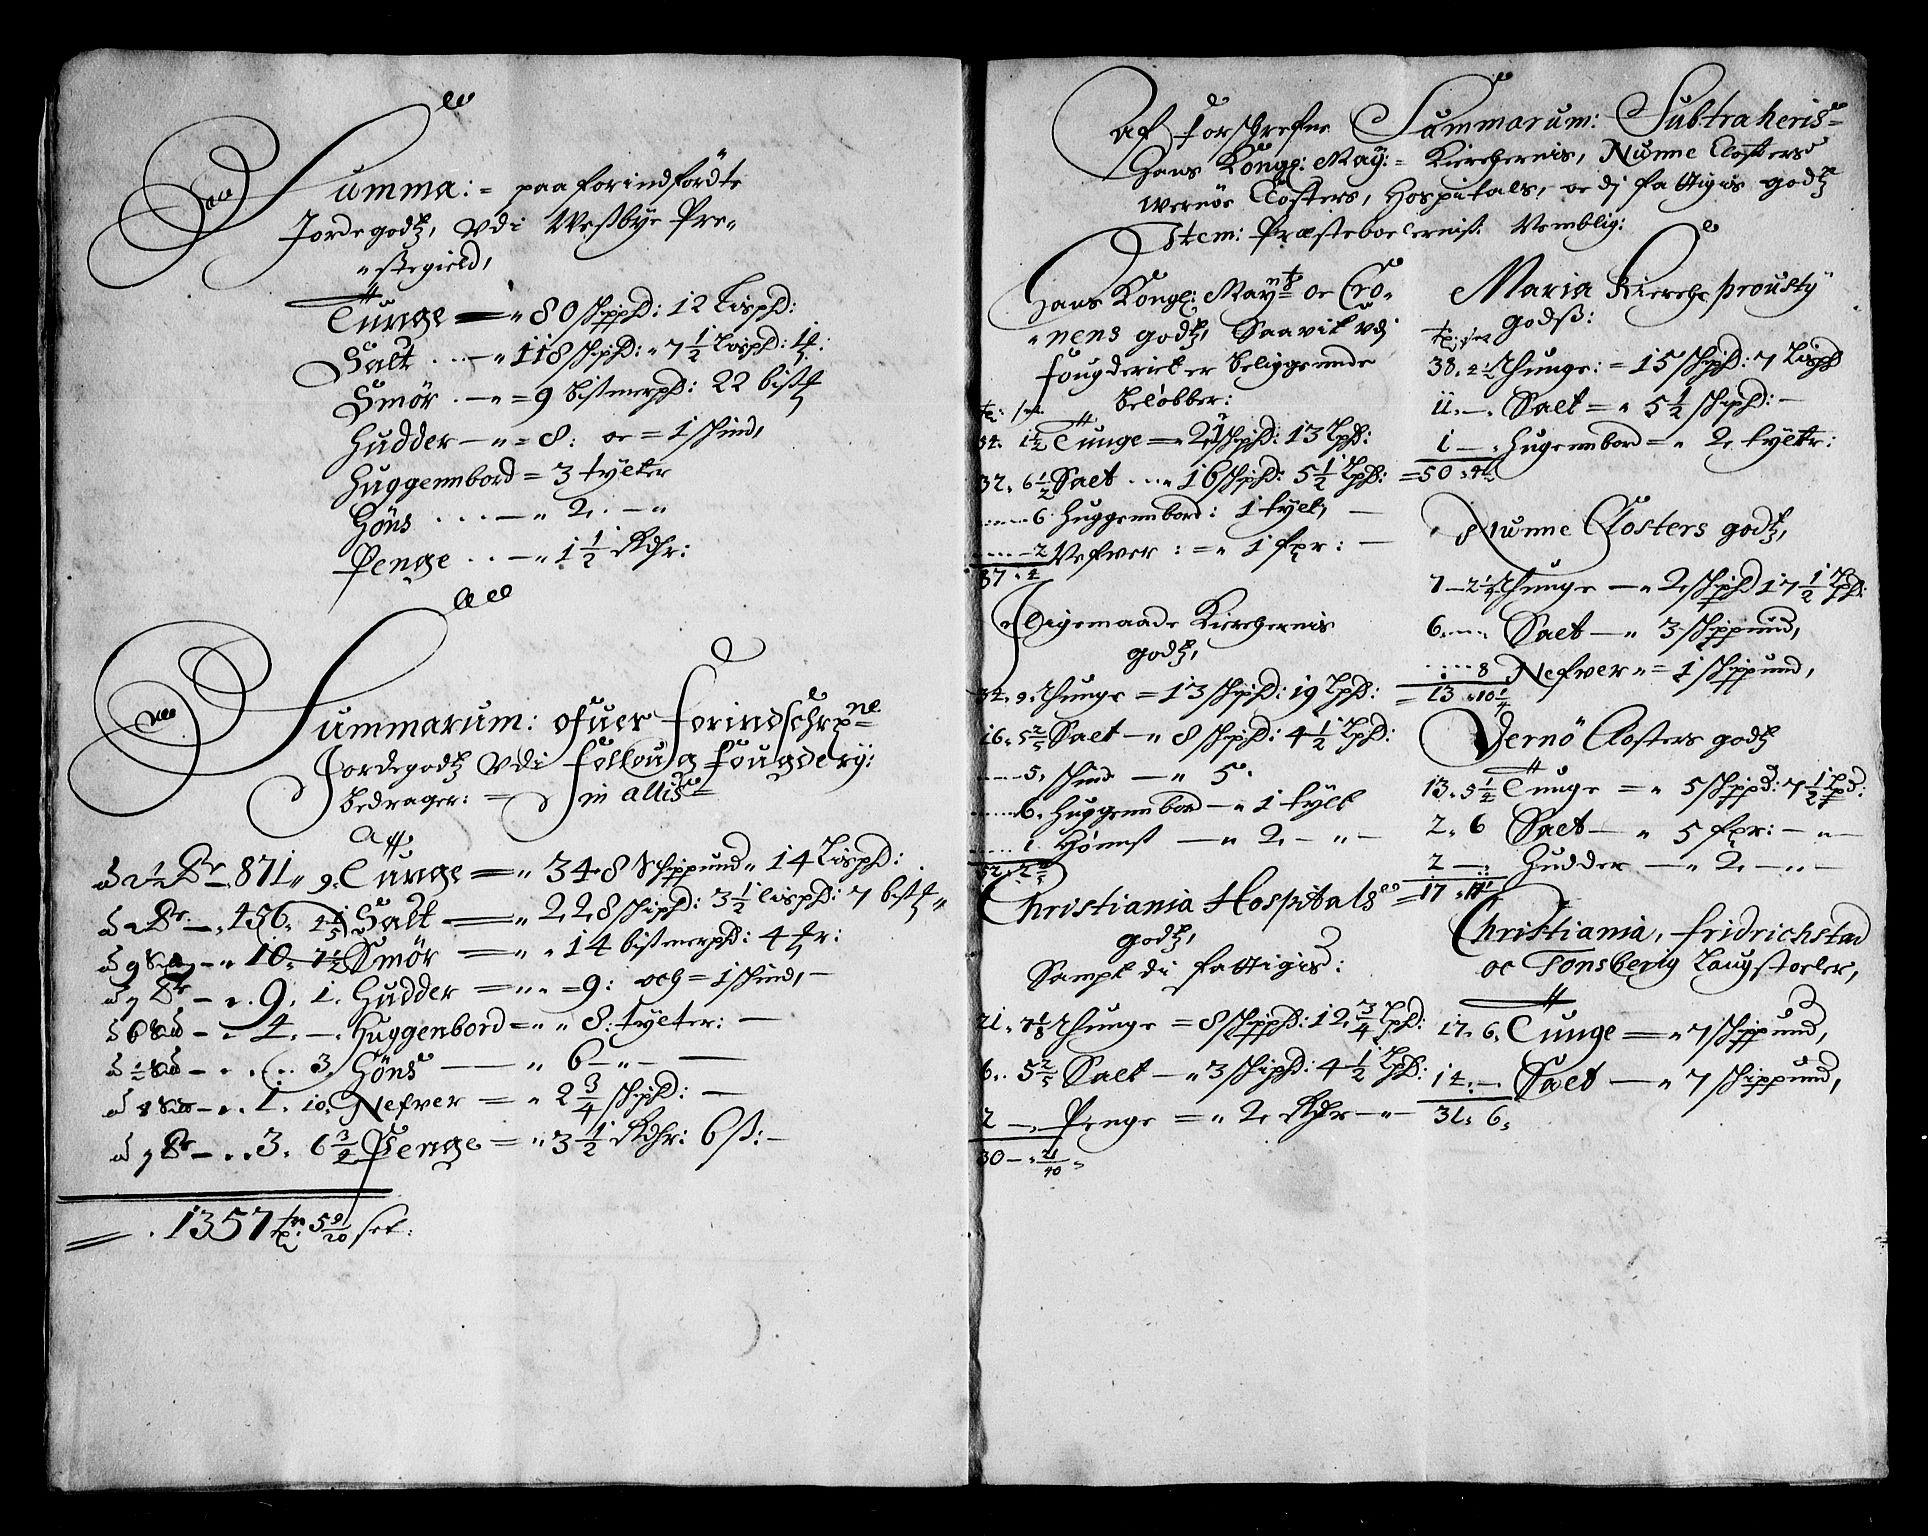 Summa: = paa forindfördte
Jordegodtz, Vdi Wessbÿe Pre„
„stegield,
Tunge — „ 80 Schippd: 12 Lispd:
Salt . . . — „ 118 Schipd: „ 7 1/2 Lispd:
Smör . — „ = 9 bissmerpd: 22
Hudder — „ = 8: oc = 1 skind,
Huggennbord = 3 tÿlter
Höns . . . — „ 2. — „
Penge . . — „ 1 1/2 Rdr:
Summarum: ofuer forindschrpne
Jordegodtz Vdi folloug fougderÿ:
bedrager: = in alliss
871 „ 9. Tunge = „ 348 Schippund „ 14 Lispd:
456. Salt — „ 228 schipd: 3 1/2 lispd: 7
10. 7 1/2 Smör = „ „ 14 bissmerpd: 4
9. 1. Hudder = „ „ = 9: och = 1 skind, —
4. —. Huggenbord = „ „ 8: tylter: —
3. Höns — „ 6 — „ —
1. 10. Nefver = „ 2 3/4 schipd: —
3. 6 3/4 Penge = „ 3 1/2 Rdr: 6 ß: —
1357 5 9/20 set:
Af forschrefne Summarum: Subtraheris
Hans Kongl: May: = Kirchernis, Nunne Closters
Wernöe Closters, Hospitals, oc dj fattigis godtz
Item: Præsteboelerniss. Nemblig:
Hans Kongl: Maytz oc Cro„
„nens godtz, Saavit Vdj
fougderiet er beliggende
beløbber:
34. 1 1/2 Tunge = „ 21 schipd: 13 Lpd:
32. 6 1/2 Salt . . . „ 16 schipd: 5 1/2 Lpd:
6 Huggennbord: 1 tylt, —
2 Nefver: = „ 1 fpr: —
Ligemaade Kierchernis
godtz,
34. 9. Thunge = 13 schipd: 19 Lpd:
16. 5 2/5 Salt — „ 8 schipd: 4 1/2 Lpd:
5. skind — „ 5.
6. Huggennbord — „ 1 tylt
1. Hönnss — „ 2. — „ —
Christiania Hospitals
godtz,
Sampt di fattigis:
21. 7 1/8 Thunge = 8 schippd: 12 3/4 Lpd:
6. 5 2/5 Salt — „ 3 schipd: 4 1/2 Lpd:
2 —. Penge = „ 2 Rdr — „ —
30 — „ 21/40
Maria Kierche prousty
godss:
38. 2 1/2 Thunge: = 15 schipd: 7 Lispd
11. —. Salt = „ 5 1/2 schipd: —
1 —: Hugennbord = „ 2 tylter:
= 50
Nunne Closters godtz,
7 — 2 1/4 Thunge — „ 2 schipd 17 1/2 Lpd:
6. — Salt — „ 3 schippund,
8 Nefver „ = 1 schippund,
= 13 „ 10 1/4
Vernö Closters godtz
13. 5 1/4 Tunge = „ 5 schippd: 7 1/2 Lpd:
2. 6 Salt — „ 5 fpr: — „ —
2 —: Hudder — „ 2 — „ —
= 17
Christiania, fridrichstad
oc Tonsberig Laugstoeler,
17. 6. Tunge = „ 7 schippund,
14. —. Salt — „ 7 schippund,
31. 6.